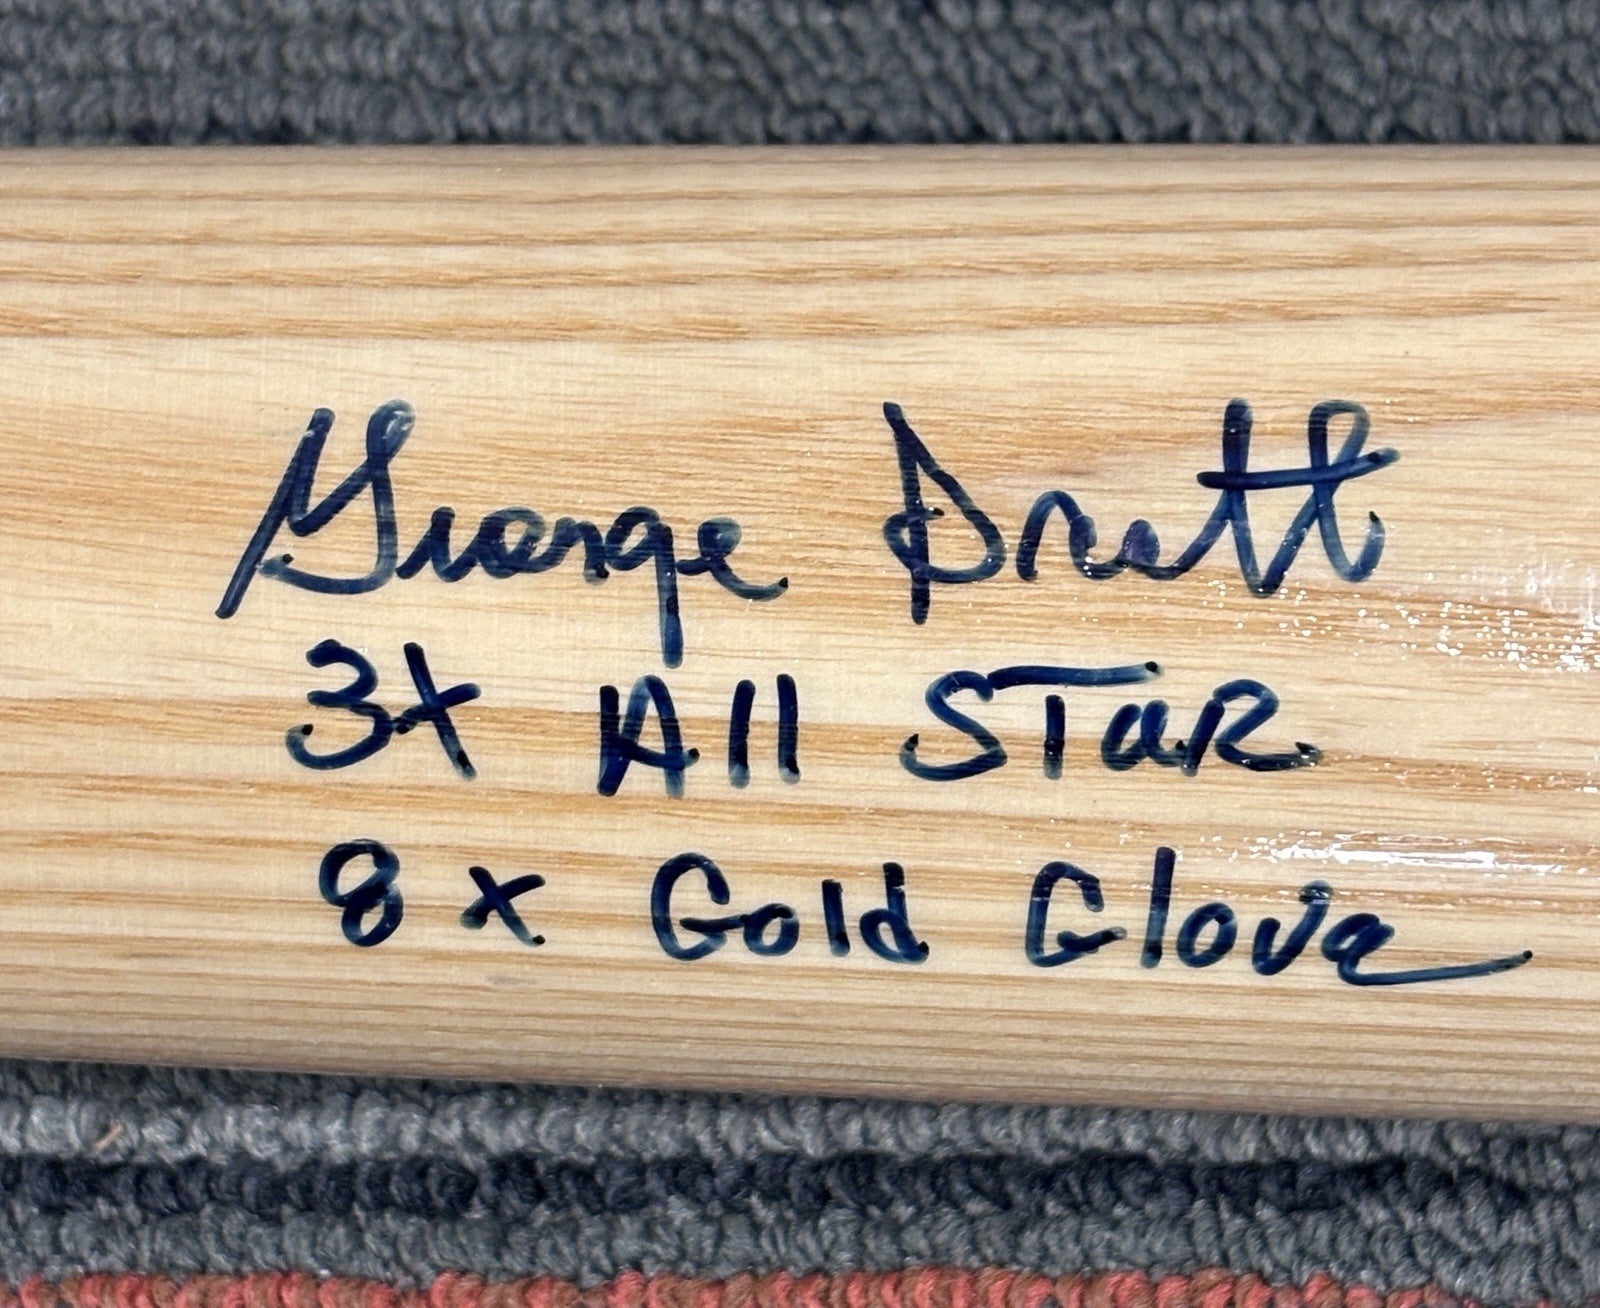 George Brett
3x All Star
8x Gold Glove